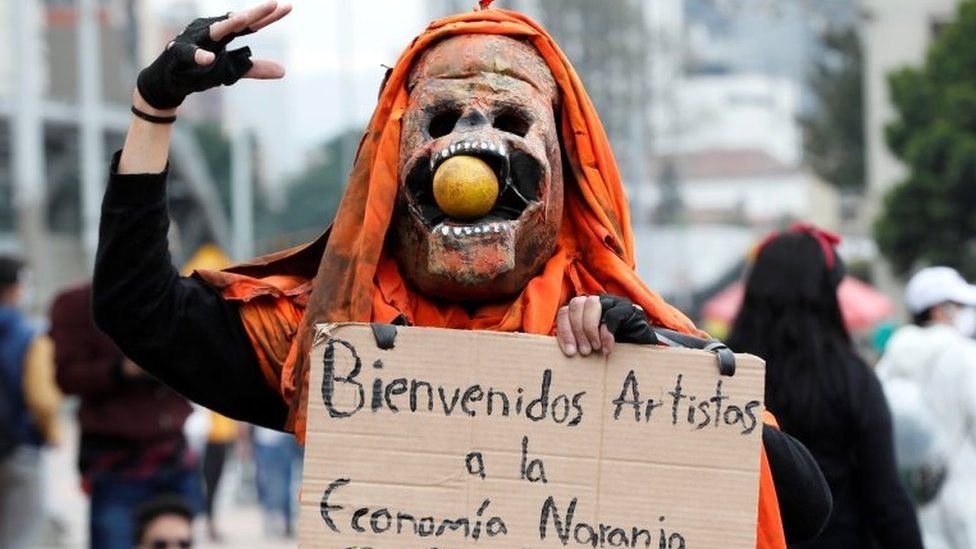 Bienvenidos Artistas
a la
Economía Naranja